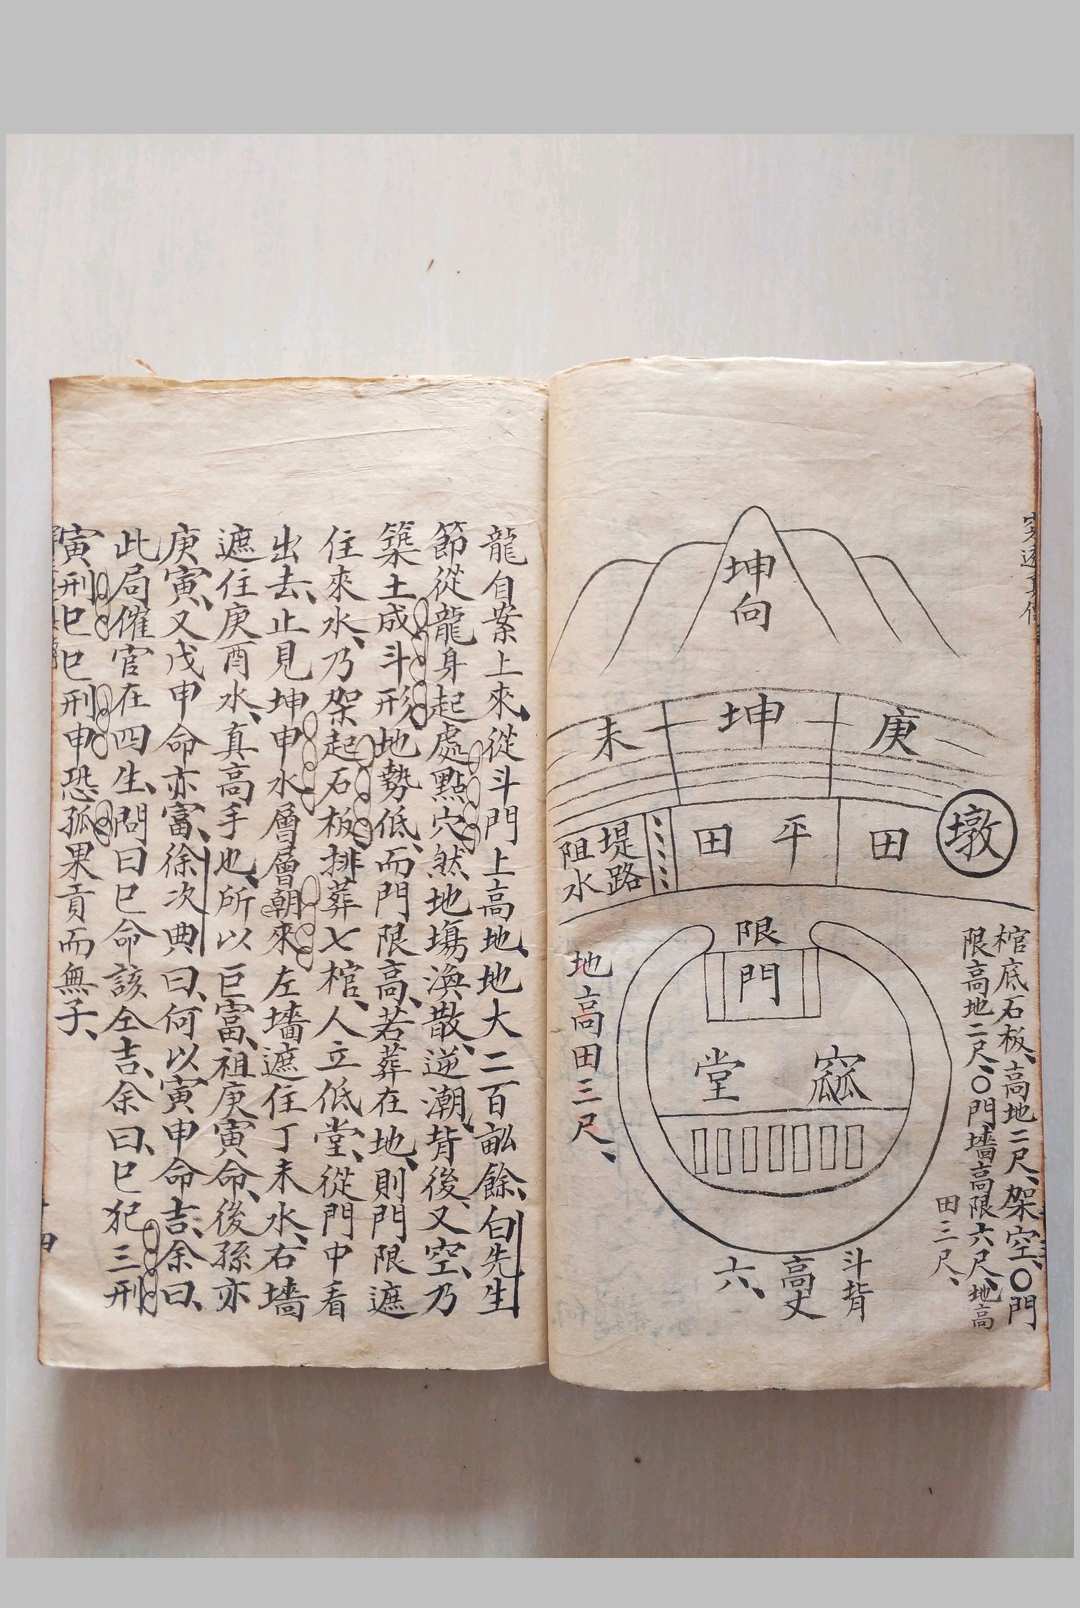 坤向
未
坤
庚
堤路
阻水
田
平
田
墩
棺底石板、高地二尺、架空、〇門
限高地二尺、〇門墻高限六尺、地高
田三尺、
限
門
堂
窳
地高田三尺、
斗背
高丈
六、
龍自案上來、從斗門上高地、地大二百畝餘、白先生
節從龍身起處點穴、然地塲渙散、逆潮背後、又空、乃
築土成斗形、地勢低、而門限高、若葬在地、則門限遮
住來水、乃架起石板、排葬七棺、人立低堂、從門中看
出去、止見坤申水層層朝來、左墻遮住丁未水、右墻
遮住庚酉水、真高手也、所以巨富、祖庚寅命、後孫亦
庚寅、又戊申命亦富、徐次典曰、何以寅申命吉、余曰、
此局催官在四生、問曰巳命該仝吉、余曰、巳犯三刑
寅刑巳巳刑申、恐孤果貢而無子、